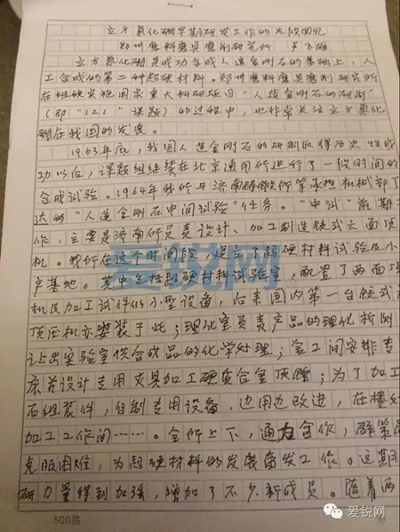 立方氮化硼早期研发工作的片段回忆
郑州磨料磨具磨削研究所 卢飞雄
立方氮化硼是成功合成人造金刚石的基础上，人
工合成的第二种超硬材料。郑州磨料磨具磨削研究所
在组织实施国家重大科研项目"人造金刚石的研制"
（即"121"课题）的过程中，也非常关注立方氮化
硼在我国的发展。
1963年底，我国人造金刚石的研制取得历史性成
功以后，课题组继续在北京通用所进行了一段时间的
合成试验。1964年我所与济南铸锻所等承担机械部下
达的"人造金刚石中间试验"任务。"中试"前期
作，主要是济南所负责设计、加工制造铰链式六面顶
机。我所在这个时间段，建立了超硬材料试验及小
产基地。其中包括超硬材料试验室，配置了两面
机及加工试件的小型设备，后来国内第一台铰链式
顶压机亦安装于此；理化室负责产品的理化检测
让出实验室供合成品的化学处理；金工间安排专
床并设计专用夹具加工硬质合金顶锤；为了加工
石组装件，自制专用设备，边用边改进，在楼
加工工作间……。全所上下，通力合作，群策
克服困难，为超硬材料的发展奋发工作。这期
研力量得到加强，增加了不少新成员。随着两
500格
爱锐网
爱锐网